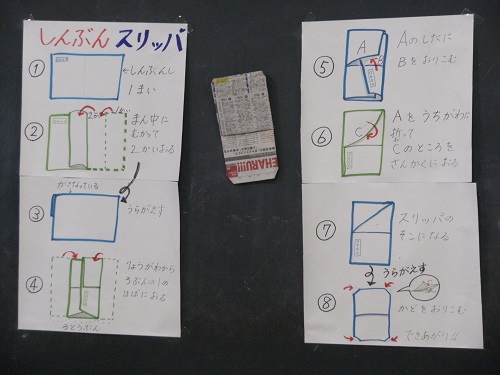 しんぶんスリッパ
①
←しんぶんし
1まい
②
2かい
1かい
まん中に
むかって
2かいおる
かさなっている
③
うらがえす
④
りょうがわから
3ぶんの1の
はばにおる
3とうぶん
⑤
A
B
Aのしたに
Bをおりこむ
⑥
C
Aをうちがわに
折って
Cのところを
さんかくにおる
⑦
スリッパの
そこになる
うらがえす
⑧
かどをおりこむ
できあがり!!
EHARU!!!